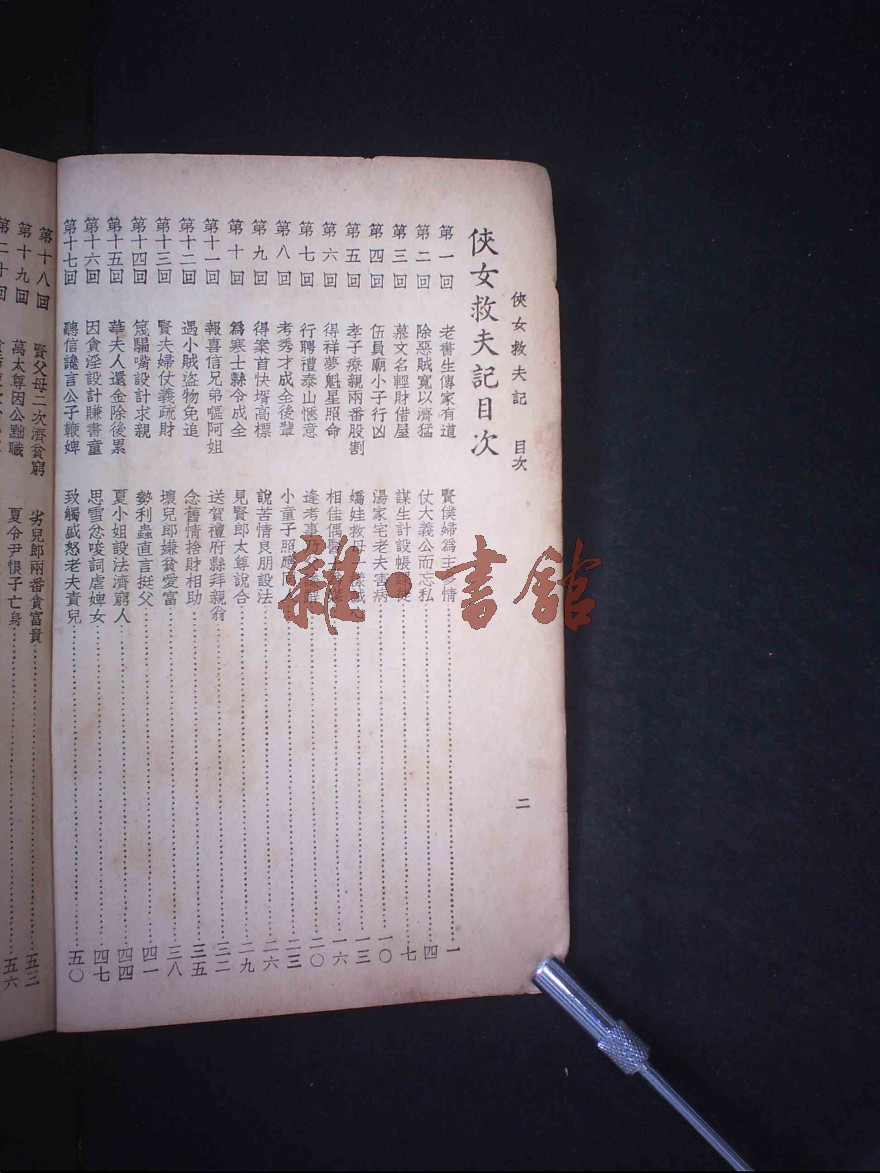 俠女救夫記 目次 二
俠女救夫記目次
第一回 老書生傳家有道 賢僕婦為主多情 一
第二回 除惡賊寬以濟猛 仗大義公而忘私 四
第三回 慕文名輕財借屋 謀生計設帳課徒 七
第四回 伍員廟小子行凶 湯家宅老夫害病 一〇
第五回 孝子療親兩番股割 嬌娃救母一樣 一三
第六回 得祥夢魁星照命 相佳偶 一六
第七回 行聘禮泰山愜意 逢考事乃 二〇
第八回 考秀才成全後輩 小童子照應同 二三
第九回 得案首快壻高標 說苦情良朋設法 二六
第十回 為寒士縣令成全 見賢郎太尊說合 二九
第十一回 報喜信兄弟嘔阿姐 送賀禮府縣拜親翁 三二
第十二回 遇小賊盜物免追 念舊情捨財相助 三五
第十三回 賢夫婦仗義疏財 壞兒郎嫌貧愛富 三八
第十四回 篾騙嘴設計求親 勢利蟲直言挺父 四一
第十五回 華夫人還金除後累 夏小姐設法濟窮人 四四
第十六回 因食淫設計賺書童 思雪忿唆詞虐婢女 四七
第十七回 聽信讒言公子鞭婢 致觸盛怒老夫責兒 五〇
第十八回 賢父母二次濟貧窮 劣兒郎兩番貪富貴 五三
第十九回 萬太尊因公黜職 夏令尹恨子亡身 五六
第二十回